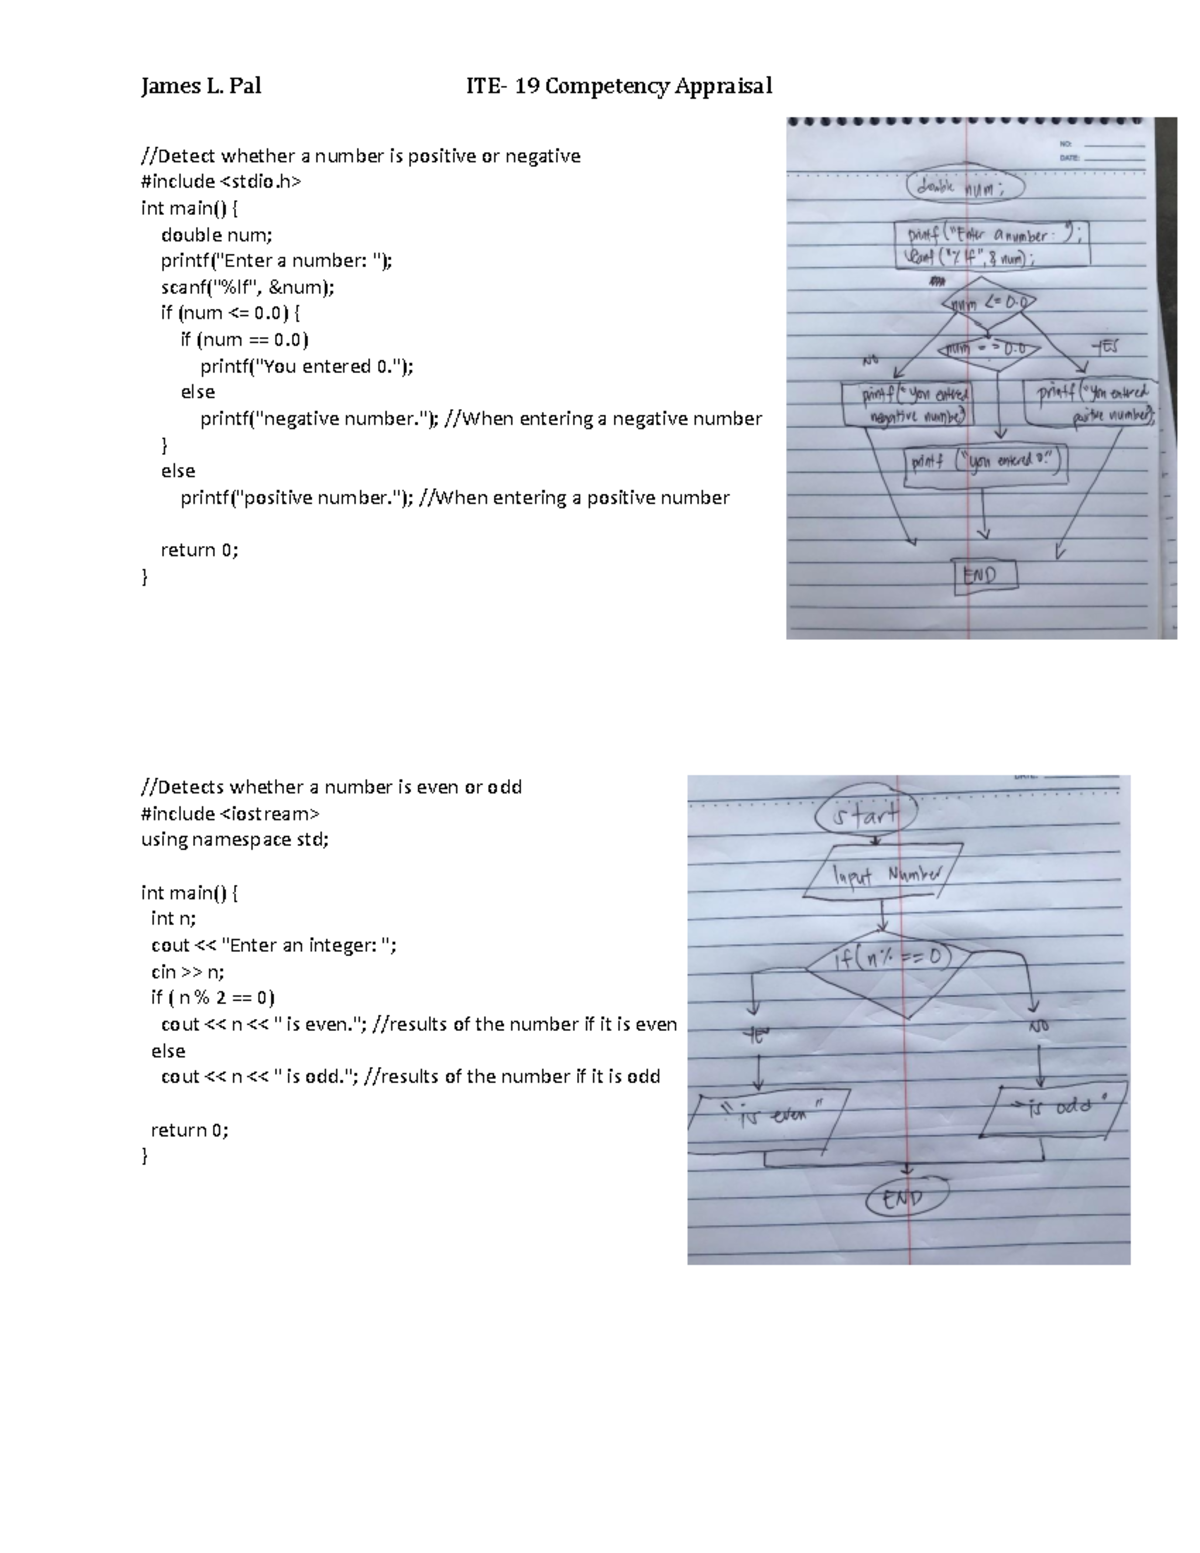 James L. Pal ITE- 19 Competency Appraisal
//Detect whether a number is positive or negative
#include <stdio.h>
int main() {
double num;
printf("Enter a number: ");
scanf("%lf", &num);
if (num <= 0.0) {
if (num == 0.0)
printf("You entered 0.");
else
printf("negative number."); //When entering a negative number
}
else
printf("positive number."); //When entering a positive number
return 0;
}
NO:
DATE:
double num;
printf("Enter a number: ");
scanf("%lf", & num);
num <= 0.0
num = = 0.0
NO
YES
printf("you entered
negative number)
printf("you entered
positve number);
printf ("you entered 0.")
END
//Detects whether a number is even or odd
#include <iostream>
using namespace std;
int main() {
int n;
cout << "Enter an integer: ";
cin >> n;
if ( n % 2 == 0)
cout << n << " is even."; //results of the number if it is even
else
cout << n << " is odd."; //results of the number if it is odd
return 0;
}
start
Input Number
if(n% == 0)
NO
"is even"
"is odd"
END